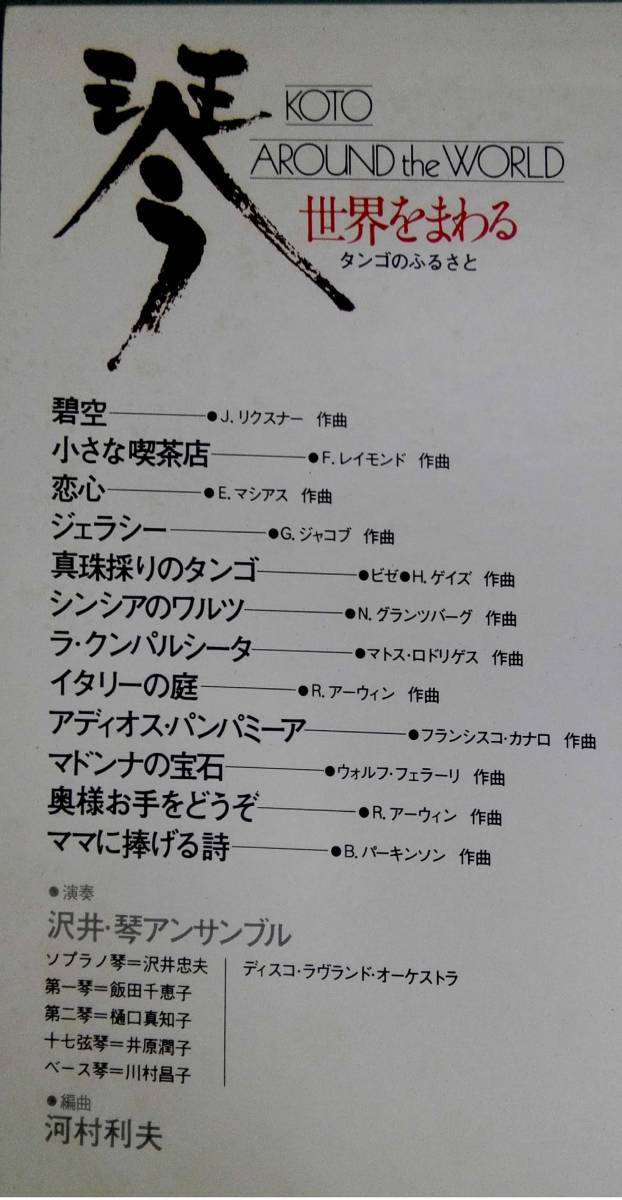 琴
KOTO
AROUND the WORLD
世界をまわる
タンゴのふるさと
碧空――●J. リクスナー 作曲
小さな喫茶店――●F. レイモンド 作曲
恋心――●E. マシアス 作曲
ジェラシー――●G. ジャコブ 作曲
真珠採りのタンゴ――●ビゼ●H. ゲイズ 作曲
シンシアのワルツ――●N. グランツバーグ 作曲
ラ・クンパルシータ――●マトス・ロドリゲス 作曲
イタリーの庭――●R. アーウィン 作曲
アディオス・パンパミーア――●フランシスコ・カナロ 作曲
マドンナの宝石――●ウォルフ・フェラーリ 作曲
奥様お手をどうぞ――●R. アーウィン 作曲
ママに捧げる詩――●B. パーキンソン 作曲
●演奏
沢井・琴アンサンブル
ソプラノ琴=沢井忠夫
第一琴=飯田千恵子
第二琴=樋口真知子
十七弦琴=井原潤子
ベース琴=川村昌子
ディスコ・ラヴランド・オーケストラ
●編曲
河村利夫